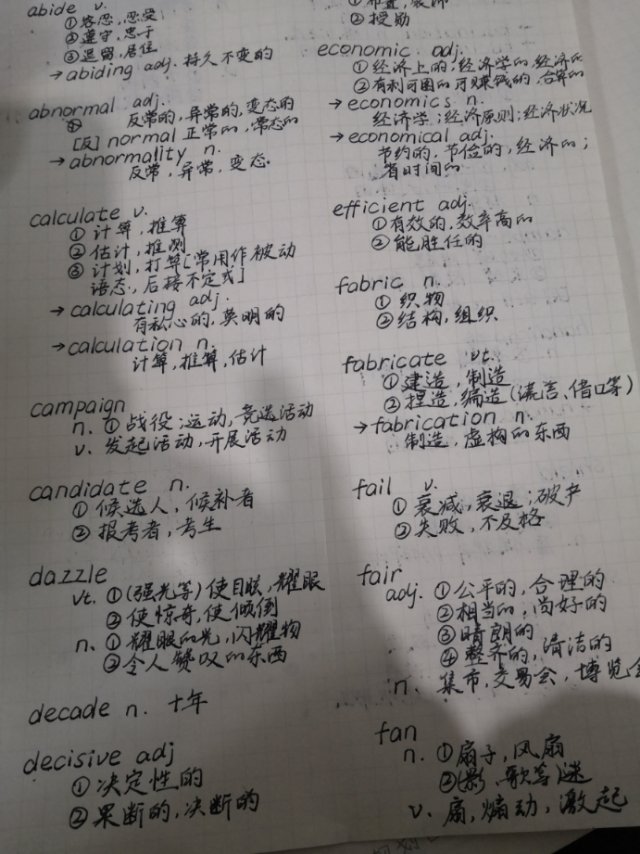 abide v.
①容忍,忍受
②遵守,忠于
③逗留,居住
→abiding adj. 持久不变的
abnormal adj.
反常的,异常的,变态的
[反] normal 正常的,常态的
→abnormality n.
反常,异常,变态.
calculate v.
①计算,推算
②估计,推测
③计划,打算[常用作被动
语态,后接不定式]
→calculating adj.
有私心的,英明的
→calculation n.
计算,推算,估计
campaign
n. ①战役;运动,竞选活动
v. 发起活动,开展活动
candidate n.
①候选人,候补者
②报考者,考生
dazzle
vt. ①(强光等)使目眩,耀眼
②使惊奇,使倾倒
n. ①耀眼的光,闪耀物
②令人赞叹的东西
decade n. 十年
decisive adj
①决定性的
②果断的,决断的
②授勋
economic adj.
①经济上的;经济学的,经济的
②有利可图的,可赚钱的,合算的
→economics n.
经济学;经济原则;经济状况
→economical adj.
节约的,节俭的,经济的;
省时间的
efficient adj.
①有效的,效率高的
②能胜任的
fabric n.
①织物
②结构,组织
fabricate vt.
①建造,制造
②捏造,编造(谎言、借口等)
→fabrication n.
制造,虚构的东西
fail v.
①衰减,衰退;破产
②失败,不及格
fair
adj. ①公平的,合理的
②相当的,尚好的
③晴朗的
④整齐的,清洁的
n. 集市,交易会,博览会
fan
n. ①扇子,风扇
②(影、歌等)迷
v. 扇,煽动,激起